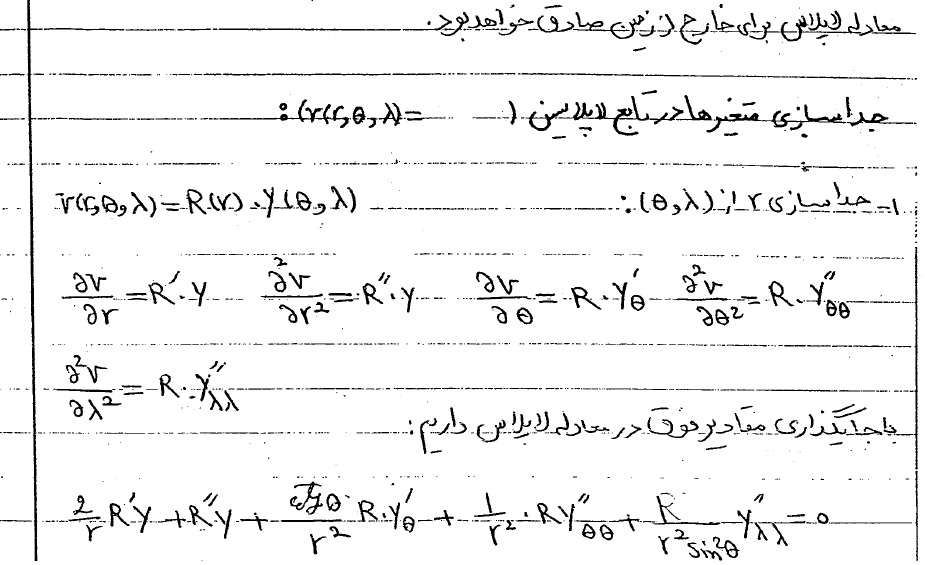 معادله لاپلاس برای خارج از زمین صادق خواهد بود.
جداسازی متغیرها در تابع لاپلاسین ( =v(r,θ,λ)) :
۱- جداسازی r از (θ,λ) : v(r,θ,λ)=R(r).Y(θ,λ)
∂v/∂r = R′.Y ∂²v/∂r² = R″.Y ∂v/∂θ = R.Y′θ ∂²v/∂θ² = R.Y″θθ
∂²v/∂λ² = R.Y″λλ
با جایگذاری مقادیر فوق در معادله لاپلاس داریم:
2/r R′Y + R″Y + cotgθ/r² R.Y′θ + 1/r² . RY″θθ + R/r²sin²θ Y″λλ = 0